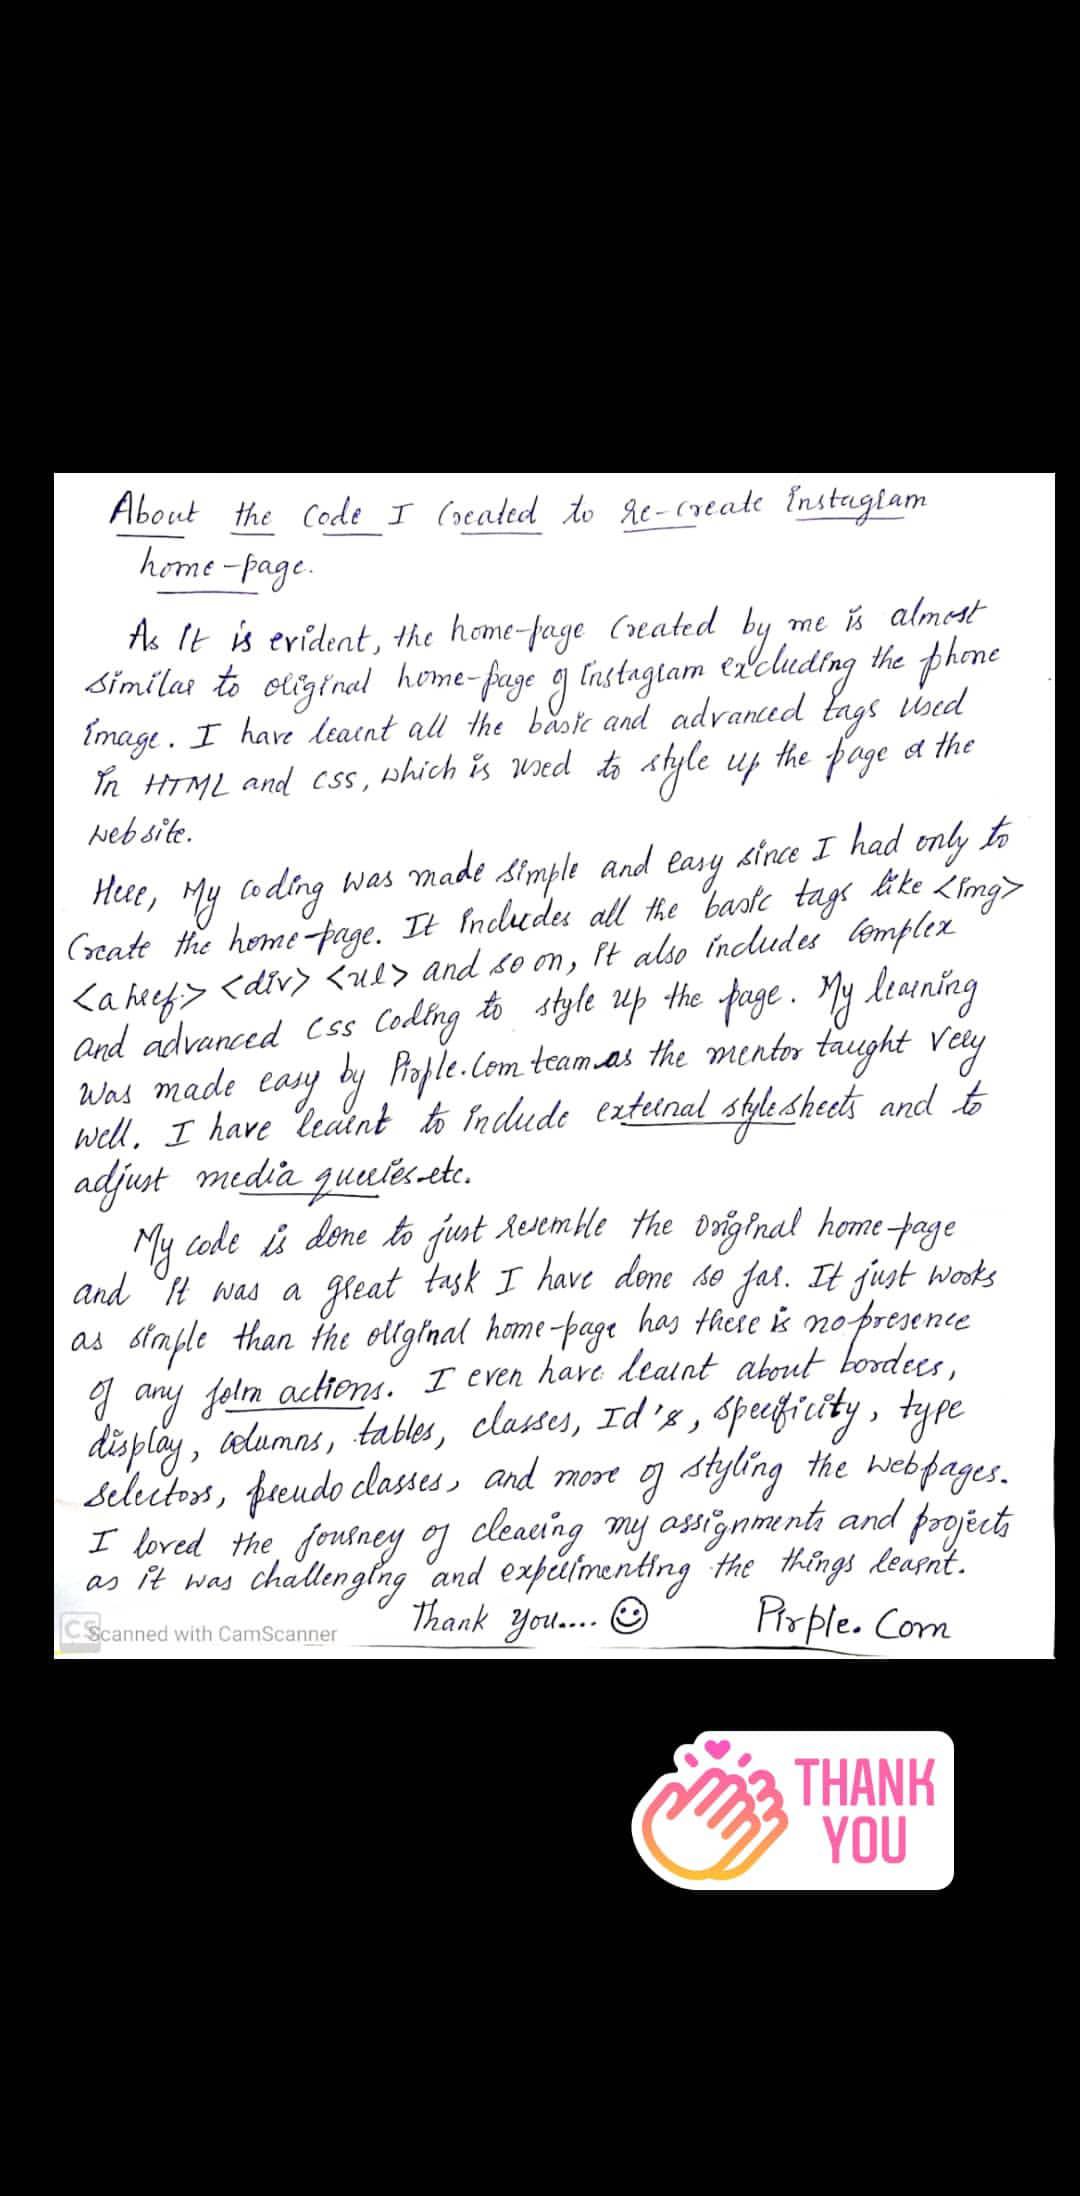 About the Code I Created to Re-create Instagram
home-page.
As It is evident, the home-page Created by me is almost
similar to original home-page of Instagram excluding the phone
image. I have learnt all the basic and advanced tags used
In HTML and CSS, which is used to style up the page of the
website.
Here, My coding was made simple and easy since I had only to
Create the home-page. It Includes all the basic tags like <img>
<a href:> <div> <ul> and so on, It also includes Complex
and advanced CSS Coding to style up the page. My learning
was made easy by Pirple.Com team as the mentor taught very
well. I have learnt to Include external stylesheets and to
adjust media queries etc.
My code is done to just resemble the Original home-page
and It was a great task I have done so far. It just works
as simple than the original home-page has there is no presence
of any form actions. I even have learnt about borders,
display, columns, tables, classes, Id's, specificity, type
selectors, pseudo classes, and more of styling the webpages.
I loved the journey of clearing my assignments and projects
as it was challenging and experimenting the things learnt.
Thank You.... Pirple. Com
CS Scanned with CamScanner
THANK
YOU